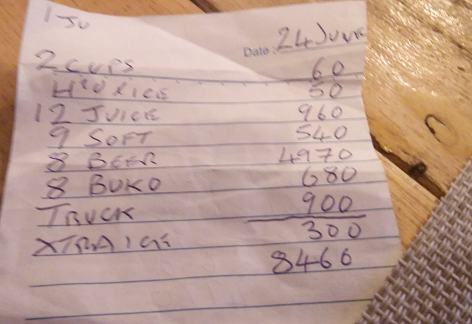 1 JU
Date: 24 JUNE
2 CUPS 60
ICE 50
12 JUICE 960
9 SOFT 540
8 BEER 4970
8 BUKO 680
TRUCK 900
XTRA ICE 300
8460